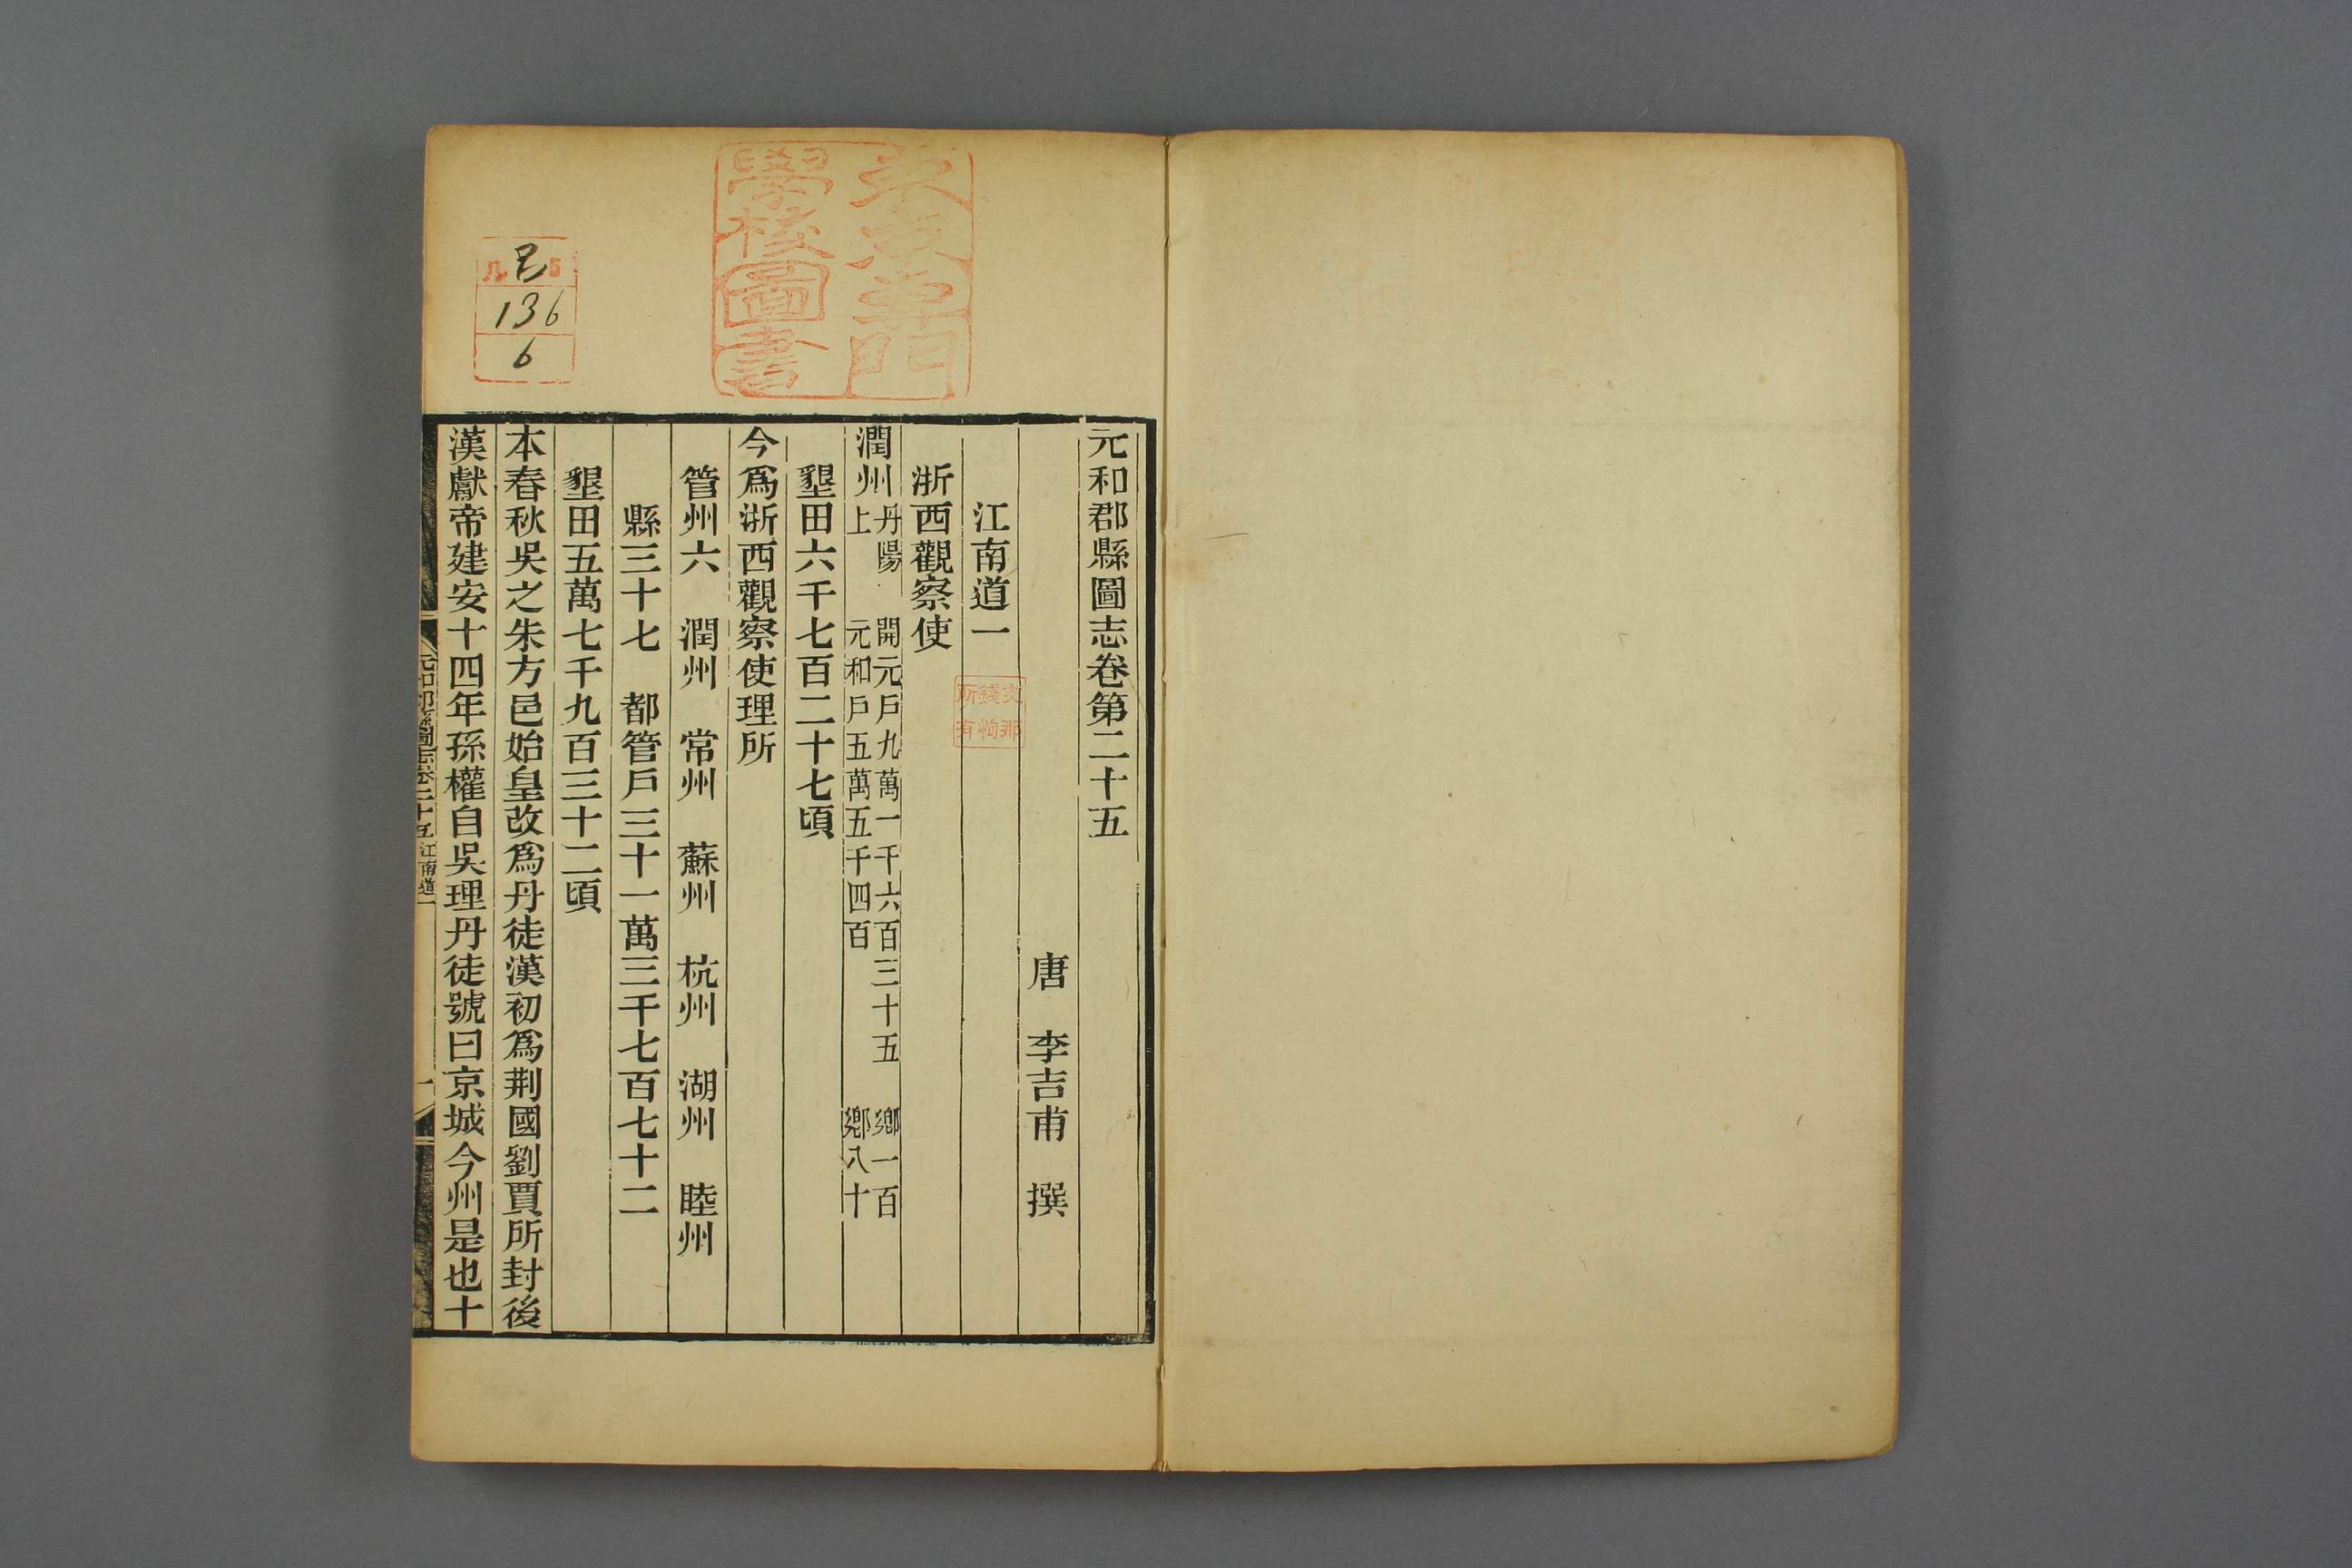 元和郡縣圖志卷第二十五
唐 李吉甫 撰
江南道一
浙西觀察使
潤州 丹陽 開元戶九萬一千六百三十五 鄉一百
上 元和戶五萬五千四百 鄉八十
墾田六千七百二十七頃
今爲浙西觀察使理所
管州六 潤州 常州 蘇州 杭州 湖州 睦州
縣三十七 都管戶三十一萬三千七百七十二
墾田五萬七千九百三十二頃
本春秋吳之朱方邑始皇改爲丹徒漢初爲荆國劉賈所封後
漢獻帝建安十四年孫權自吳理丹徒號曰京城今州是也十
元和郡縣圖志卷二十五 江南道一 一
學校圖書
支那
錢恂
所有
136
6